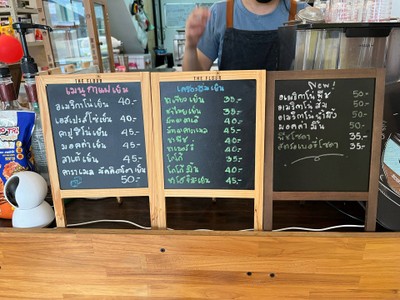 THE FLOUR
เมนูกาแฟเย็น
อเมริกาโน่เย็น 40.-
เอสเปรสโซ่เย็น 40.-
คาปูชิโน่เย็น 45.-
มอคค่าเย็น 45.-
ลาเต้เย็น 45.-
คาราเมล มัคคิอาโต้เย็น 50.-
THE FLOUR
เครื่องดื่มเย็น
ชาเขียวเย็น 35.-
ชาไทยเย็น 35.-
40.-
40.-
ชาพีช 40.-
40.-
โกโก้ 35.-
โกโก้มิ้น 40.-
45.-
New!
อเมริกาโน่ พีช 50.-
อเมริกาโน่ ส้ม 50.-
อเมริกาโน่ น้ำผึ้ง 50.-
มอคค่า มิ้น 50.-
พีชโซดา 35.-
สตรอเบอรี่โซดา 35.-